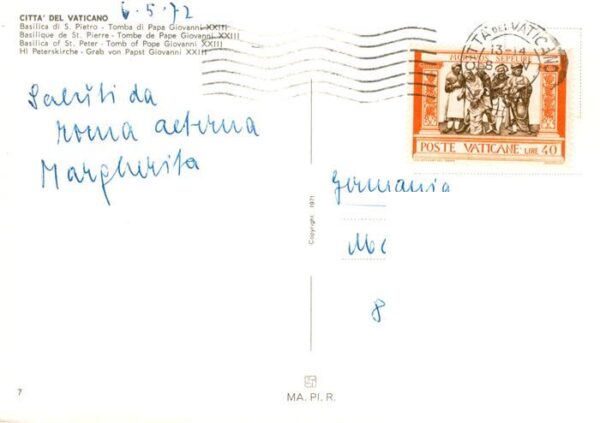 6.5.72
CITTA' DEL VATICANO
Basilica di S. Pietro - Tomba di Papa Giovanni XXIII
Basilique de St. Pierre - Tombe de Pape Giovanni XXIII
Basilica of St. Peter - Tomb of Pope Giovanni XXIII
Hl Peterskirche - Grab von Papst Giovanni XXIII
CITTÀ DEL VATICANO
13-14
MORTUOS SEPELIRE
POSTE VATICANE LIRE 40
Saluti da
roma aeterna
Margherita
Germania
8
Copyright 1971
7
MA. PI. R.